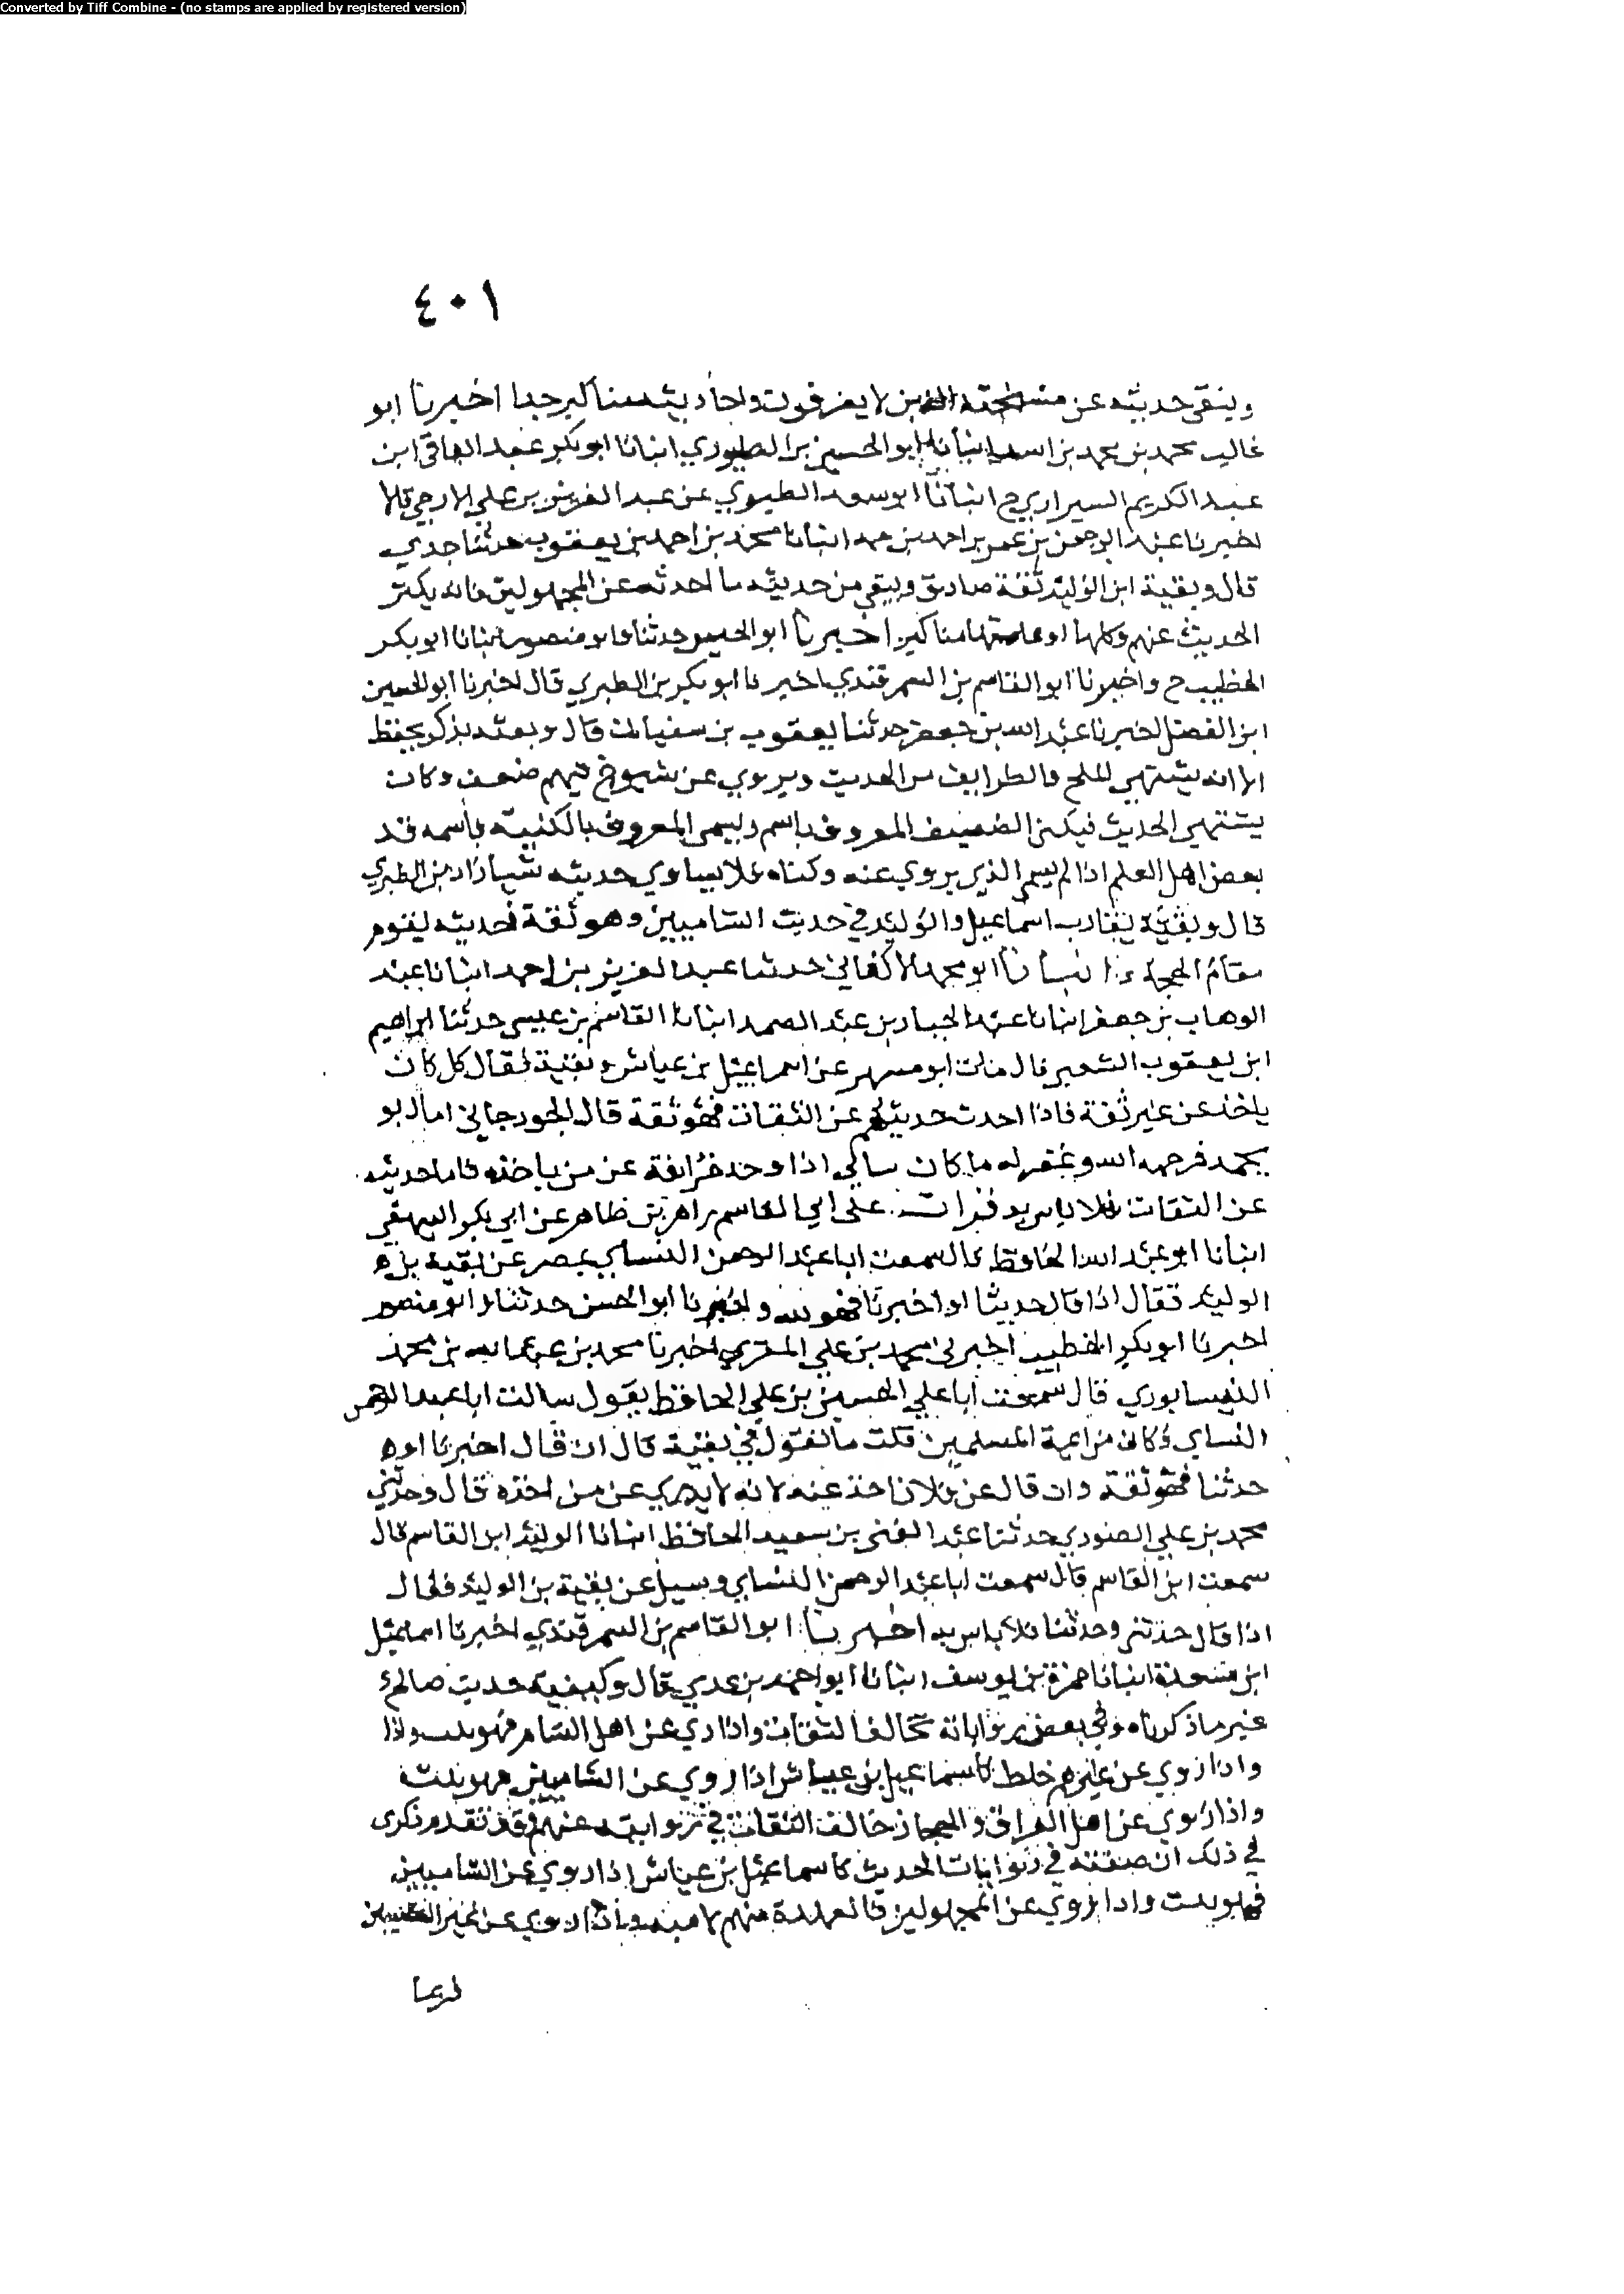 Converted by Tiff Combine - (no stamps are applied by registered version)
٤٠١
وينقى حديثه عن مشيخته الذين لا يعرفون واحاديثه مناكير جدا اخبرنا ابو
غالب محمد بن محمد بن اسد انبانا ابو الحسين بن الطيوري انبانا ابو بكر عبد الباقي ابن
عبد الكريم السيرازي ح انبانا ابو سعد الطيوري عن عبد العزيز بن علي الارجي قالا
اخبرنا عبد الرحمن بن عمر بن احمد بن حمه انبانا محمد بن احمد بن يعقوب حدثنا جدي
قال وبقية ابن الوليد ثقة صادق ويبقى من حديثه ما حدث عن المجهولين فانه يكثر
الحديث عنهم وكلها او عامتها مناكير اخبرنا ابو الحسن حدثنا وابو منصور انبانا ابو بكر
الخطيب ح واخبرنا ابو القاسم بن السمرقندي اخبرنا ابو بكر بن الطبري قال اخبرنا ابو الحسين
ابن الفضل اخبرنا عبد الله بن جعفر حدثنا يعقوب بن سفيان قال وبعثه يذكر بحفظ
الا انه يشتهي الملح والطرايف من الحديث ويروي عن شيوخ فيهم ضعف وكان
يشتهي الحديث فيكنى الضعيف المعروف باسم ويسمى المعروف بالكنية باسمه قد
بعض اهل العلم اذا لم يسم الذي يروي عنه وكناه فلا يساوي حديثه شيا زاد بن الطبري
قال وبقية يقارب اسماعيل والوليد في حديث الشاميين وهو ثقة حديثه ليقوم
مقام الحجة انبانا ابو محمد الاكفاني حدثنا عبد العزيز بن احمد انبانا عبد
الوهاب بن جعفر انبانا عبد الجبار بن عبد الصمد انبانا القاسم بن عيسى حدثنا ابراهيم
ابن يعقوب السعير قال سالت ابو مسهر عن اسماعيل بن عياش وبقية فقال كل كان
ياخذ عن غير ثقة فاذا اخدت حديثهم عن الثقات فهو ثقة قال الجوزجاني اما ابو
يحمد فرحمه الله وغفر له ما كان يبالي اذا وجد خرافة عن من ياخذه فاما حديثه
عن الثقات فلا باس به قرات على ابي القاسم زاهر بن طاهر عن ابي بكر البيهقي
انبانا ابو عبد الله الحافظ قال سمعت ابا عبد الرحمن النساي بمصر عن بقية بن
الوليد فقال اذا قال حديثا او اخبرنا فهو واخبرنا ابو الحسن حدثنا وابو منصور
اخبرنا ابو بكر الخطيب اخبرني محمد بن علي المقري اخبرنا محمد بن عبد الله بن محمد
النيسابوري قال سمعت ابا علي الحسين بن علي الحافظ يقول سالت ابا عبد الرحمن
النساي وكان من ايمة المسلمين قلت ما تقول في بقية قال ان قال اخبرنا او
حدثنا فهو ثقة وان قال عن فلان اخذ عنه لانه لا يدري عن من اخذه قال وحدثني
محمد بن علي الصوري حدثنا عبد الغني بن سعيد الحافظ انبانا الوليد ابن القاسم قال
سمعت ابن القاسم قال سمعت ابا عبد الرحمن النساي وسيل عن بقية بن الوليد فقال
اذا قال حدثني وحدثنا فلا باس به اخبرنا ابو القاسم بن السمرقندي اخبرنا اسماعيل
ابن مسعدة انبانا حمزة بن يوسف انبانا ابو احمد بن عدي قال ولبقية حديث صالح
غير ما ذكرناه وفي بعض رواياته تخالف الثقات واذا روي عن اهل الشام فهو ثبت واذا
واذا روي عن غيرهم خلط كاسماعيل بن عياش اذا روي عن الشاميين فهو ثبت
واذا روي عن اهل العراق والحجاز خالف الثقات في روايته عنهم وقد تقدم ذكرى
في ذلك ان صفته في روايات الحديث كاسماعيل بن عياش اذا روي عن الشاميين
فهو ثبت واذا روي عن المجهولين فالعهدة منهم لا منه واذا روي عن غير الشاميين
لربما